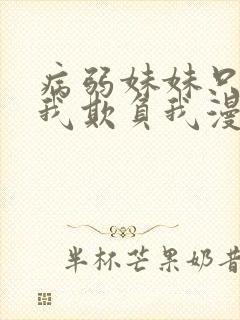 病弱妹妹只
我欺负我漫
半杯芒果奶昔